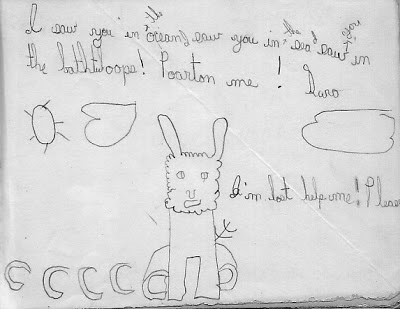 I saw you in the ocean I saw you in the sea I saw you in
the bathtwoops! Poarton me!
I'm lost help me! Pleas